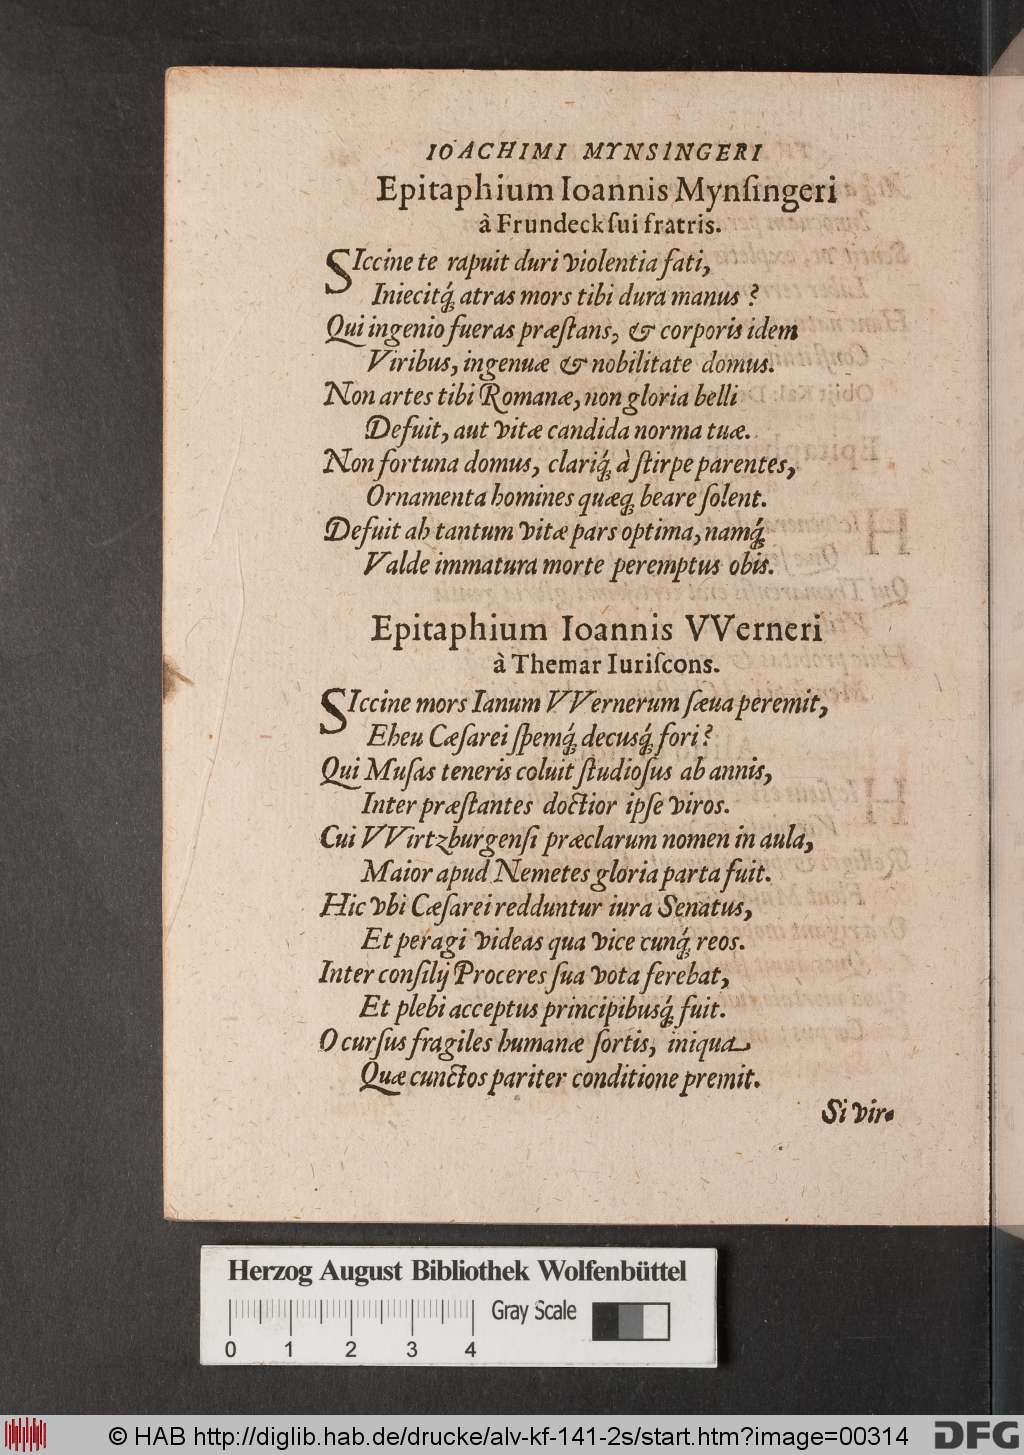 IOACHIMI MYNSINGERI
Epitaphium Ioannis Mynſingeri
à Frundeck ſui fratris.
SIccine te rapuit duri violentia fati,
Iniecitq́; atras mors tibi dura manus?
Qui ingenio fueras præſtans, & corporis idem
Viribus, ingenuæ & nobilitate domus.
Non artes tibi Romanæ, non gloria belli
Defuit, aut vitæ candida norma tuæ.
Non fortuna domus, clariq́; à ſtirpe parentes,
Ornamenta homines quæq; beare ſolent.
Defuit ah tantum vitæ pars optima, namq́;
Valde immatura morte peremptus obis.
Epitaphium Ioannis VVerneri
à Themar Iuriſcons.
SIccine mors Ianum VVernerum ſæua peremit,
Eheu Cæſarei ſpemq́; decusq́; fori?
Qui Muſas teneris coluit ſtudioſus ab annis,
Inter præſtantes doctior ipſe viros.
Cui VVirtzburgenſi præclarum nomen in aula,
Maior apud Nemetes gloria parta fuit.
Hic vbi Cæſarei redduntur iura Senatus,
Et peragi videas qua vice cunq́; reos.
Inter conſilij Proceres ſua vota ferebat,
Et plebi acceptus principibusq́; fuit.
O curſus fragiles humanæ ſortis, iniqua
Quæ cunctos pariter conditione premit.
Si vir-
Herzog August Bibliothek Wolfenbüttel
Gray Scale
0 1 2 3 4
© HAB http://diglib.hab.de/drucke/alv-kf-141-2s/start.htm?image=00314
DFG